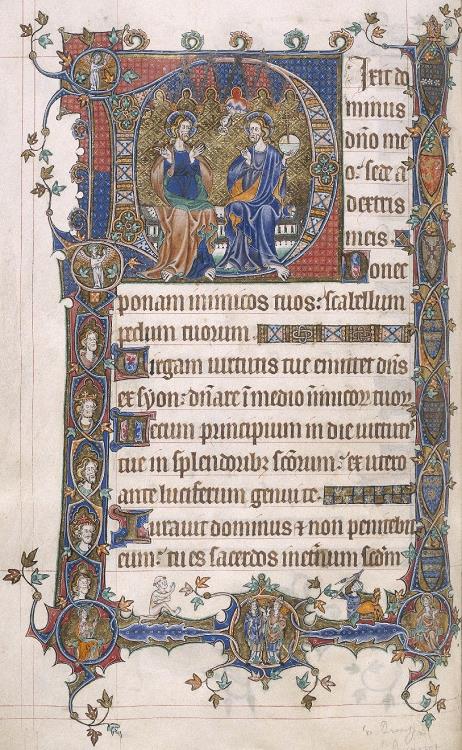 Dixit do
minus
dño me
o: sede a
dextris
meis.
Donec
ponam inimicos tuos: scabellum
pedum tuorum.
Virgam uirtutis tue emittet dñs
ex syon: dñare ĩ medio ĩimicoꝝ tuoꝝ
Tecum principium in die uirtutis
tue in splendoribꝫ sc̃orum: ex utero
ante luciferum genui te.
Iurauit dominus ⁊ non penitebit
eum: tu es sacerdos in et̃num sc̃dm